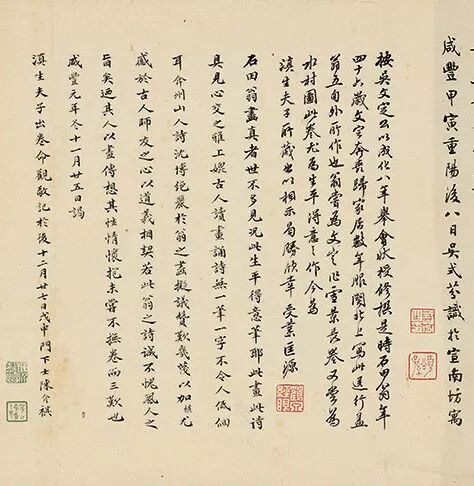 咸豐甲寅重陽後八日吳式芬識于宣南坊寓
按吳文定公以成化八年舉會狀授修撰是時石田翁年
四十六歲文定奔喪歸家居數年服闋北上寫此送行蓋
翁五旬外所作也翁嘗為文定作雪景長卷又嘗為
水村圖此卷尤為生平得意之作今為
滇生夫子所藏出以相示曷勝欣幸 受業匡源
石田翁畫真者世不多見況此生平得意筆耶此畫此詩
具見心交之雅上媲古人讀畫誦詩無一筆一字不令人低徊
耳弇州山人詩沈博絕麗於翁之畫擬議贊歎蔑以加尤
感於古人師友之心以道義相契若此翁之詩誠不愧風人之
旨矣迺其人以畫傳想其性情懷抱未嘗不撫卷而三歎也
咸豐元年冬十一月廿五日謁
滇生夫子出卷命觀敬記於後十二月廿七日戊申門下士陳介祺